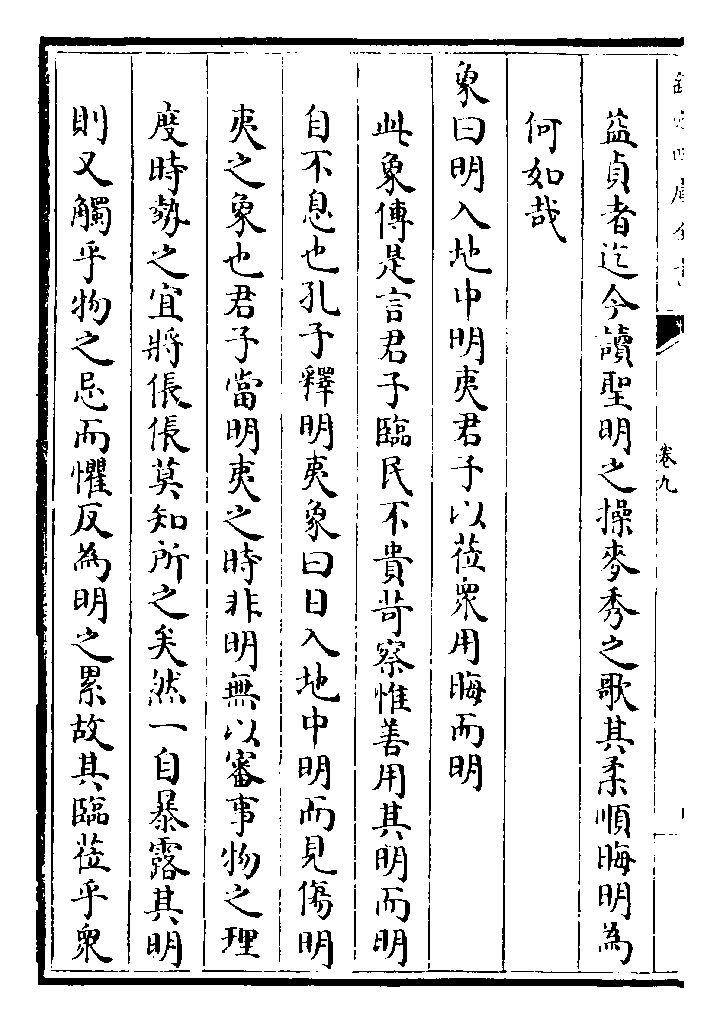 益貞者迄今讀聖明之操麥秀之歌其柔順晦明為
何如哉
象曰明入地中明夷君子以莅衆用晦而明
此象傳是言君子臨民不貴苛察惟善用其明而明
自不息也孔子釋明夷象曰日入地中明而見傷明
夷之象也君子當明夷之時非明無以審事物之理
度時勢之宜將倀倀莫知所之矣然一自暴露其明
則又觸乎物之忌而懼反為明之累故其臨莅乎衆
卷九